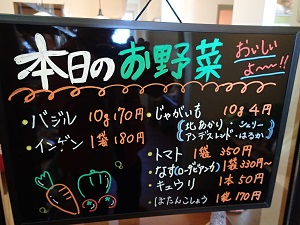 本日のお野菜
おいしいよ〜!!
・バジル 10g 70円
・インゲン 1袋 180円
・じゃがいも 10g 4円
(北あかり・シェリー
アンデスレッド・はるか)
・トマト 1袋 350円
・なす(ローザビアンカ) 1袋330円〜
・キュウリ 1本 50円
・ぼたんこしょう 1袋 170円